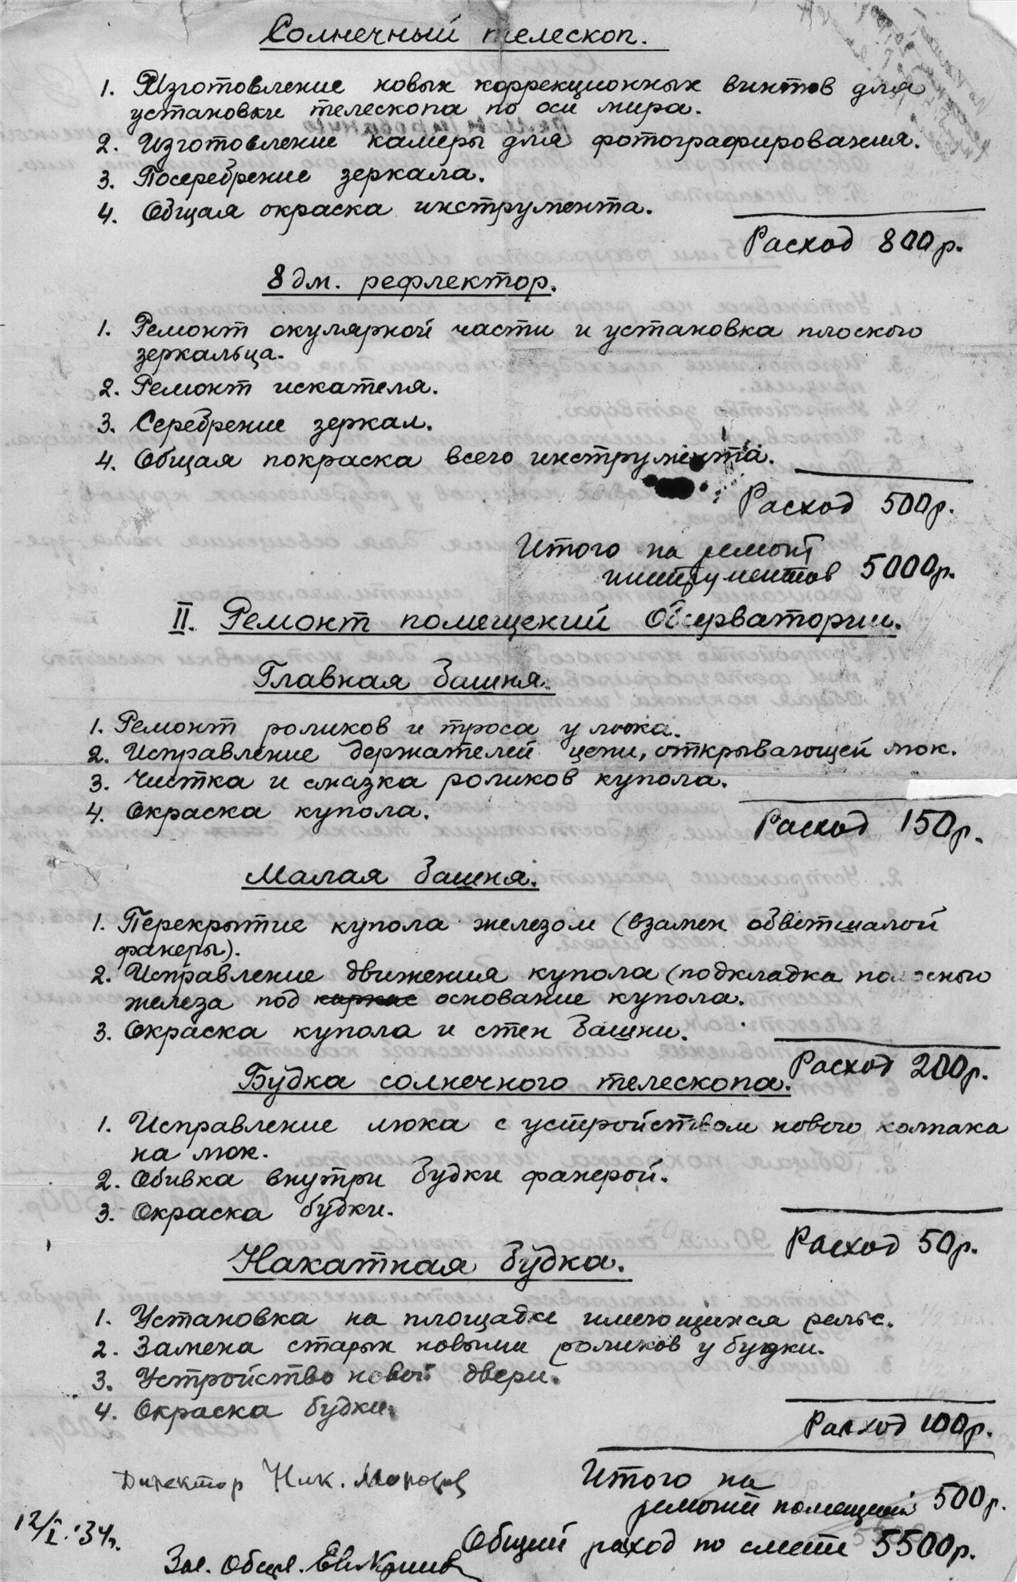 Солнечный телескоп.
1. Изготовление новых коррекционных винтов для
установки телескопа по оси мира.
2. Изготовление камеры для фотографирования.
3. Посеребрение зеркала.
4. Общая окраска инструмента.
Расход 800р.
8 дм. рефлектор.
1. Ремонт окулярной части и установка плоского
зеркальца.
2. Ремонт искателя.
3. Серебрение зеркал.
4. Общая покраска всего инструмента.
Расход 500р.
Итого на ремонт
инструментов 5000р.
II. Ремонт помещений Обсерватории.
Главная башня.
1. Ремонт роликов и троса у люка.
2. Исправление держателей цепи, открывающей люк.
3. Чистка и смазка роликов купола.
4. Окраска купола.
Расход 150р.
Малая башня.
1. Перекрытие купола железом (взамен обветшалой
фанеры).
2. Исправление движения купола (подкладка полосного
железа под каркас основание купола.
3. Окраска купола и стен башни.
Расход 200р.
Будка солнечного телескопа.
1. Исправление люка с устройством нового колпака
на люк.
2. Обивка внутри будки фанерой.
3. Окраска будки.
Расход 50р.
Накатная будка.
1. Установка на площадке имеющихся рельс.
2. Замена старых новыми роликов у будки.
3. Устройство новой двери.
4. Окраска будки.
Расход 100р.
Итого на
ремонт помещений 500р.
Директор Ник. Морозов
Общий расход по смете 5500р.
12/I. 34г.
Зав. Обсерв.